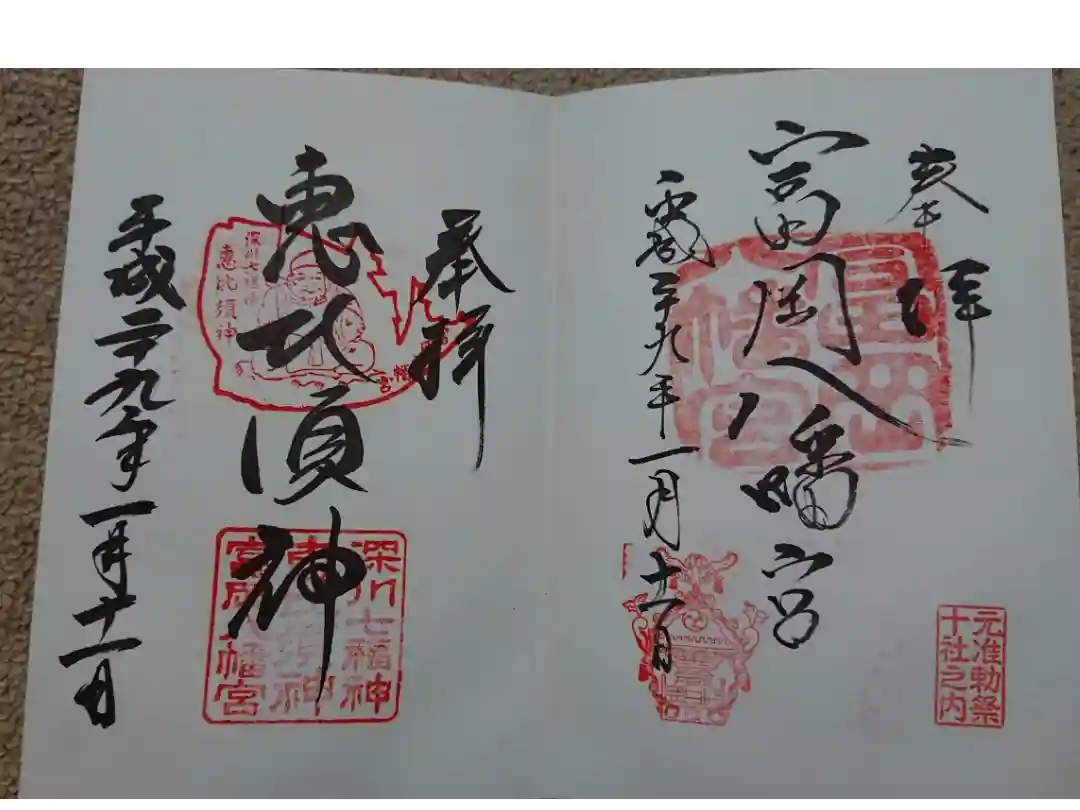 奉拝
富岡八幡宮
平成二十九年一月十一日
富岡八幡宮
元准勅祭
十社之内
奉拝
恵比須神
平成二十九年一月十一日
深川七福神
恵比須神
深川七福神
恵比須神
富岡八幡宮